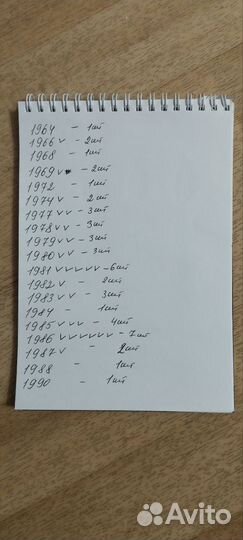 1964 - 1шт
1966 ✓ - 2шт
1968 - 1шт
1969 ✓ - 2шт
1972 - 1шт
1974 ✓ - 2шт
1977 ✓✓ - 3шт
1978 ✓✓ - 3шт
1979 ✓✓ - 3шт
1980 ✓✓ - 3шт
1981 ✓✓✓✓✓ - 6шт
1982 ✓ - 2шт
1983 ✓✓ - 3шт
1984 - 1шт
1985 ✓✓✓ - 4шт
1986 ✓✓✓✓✓✓ - 7шт
1987 ✓ - 2шт
1988 - 1шт
1990 - 1шт
Avito